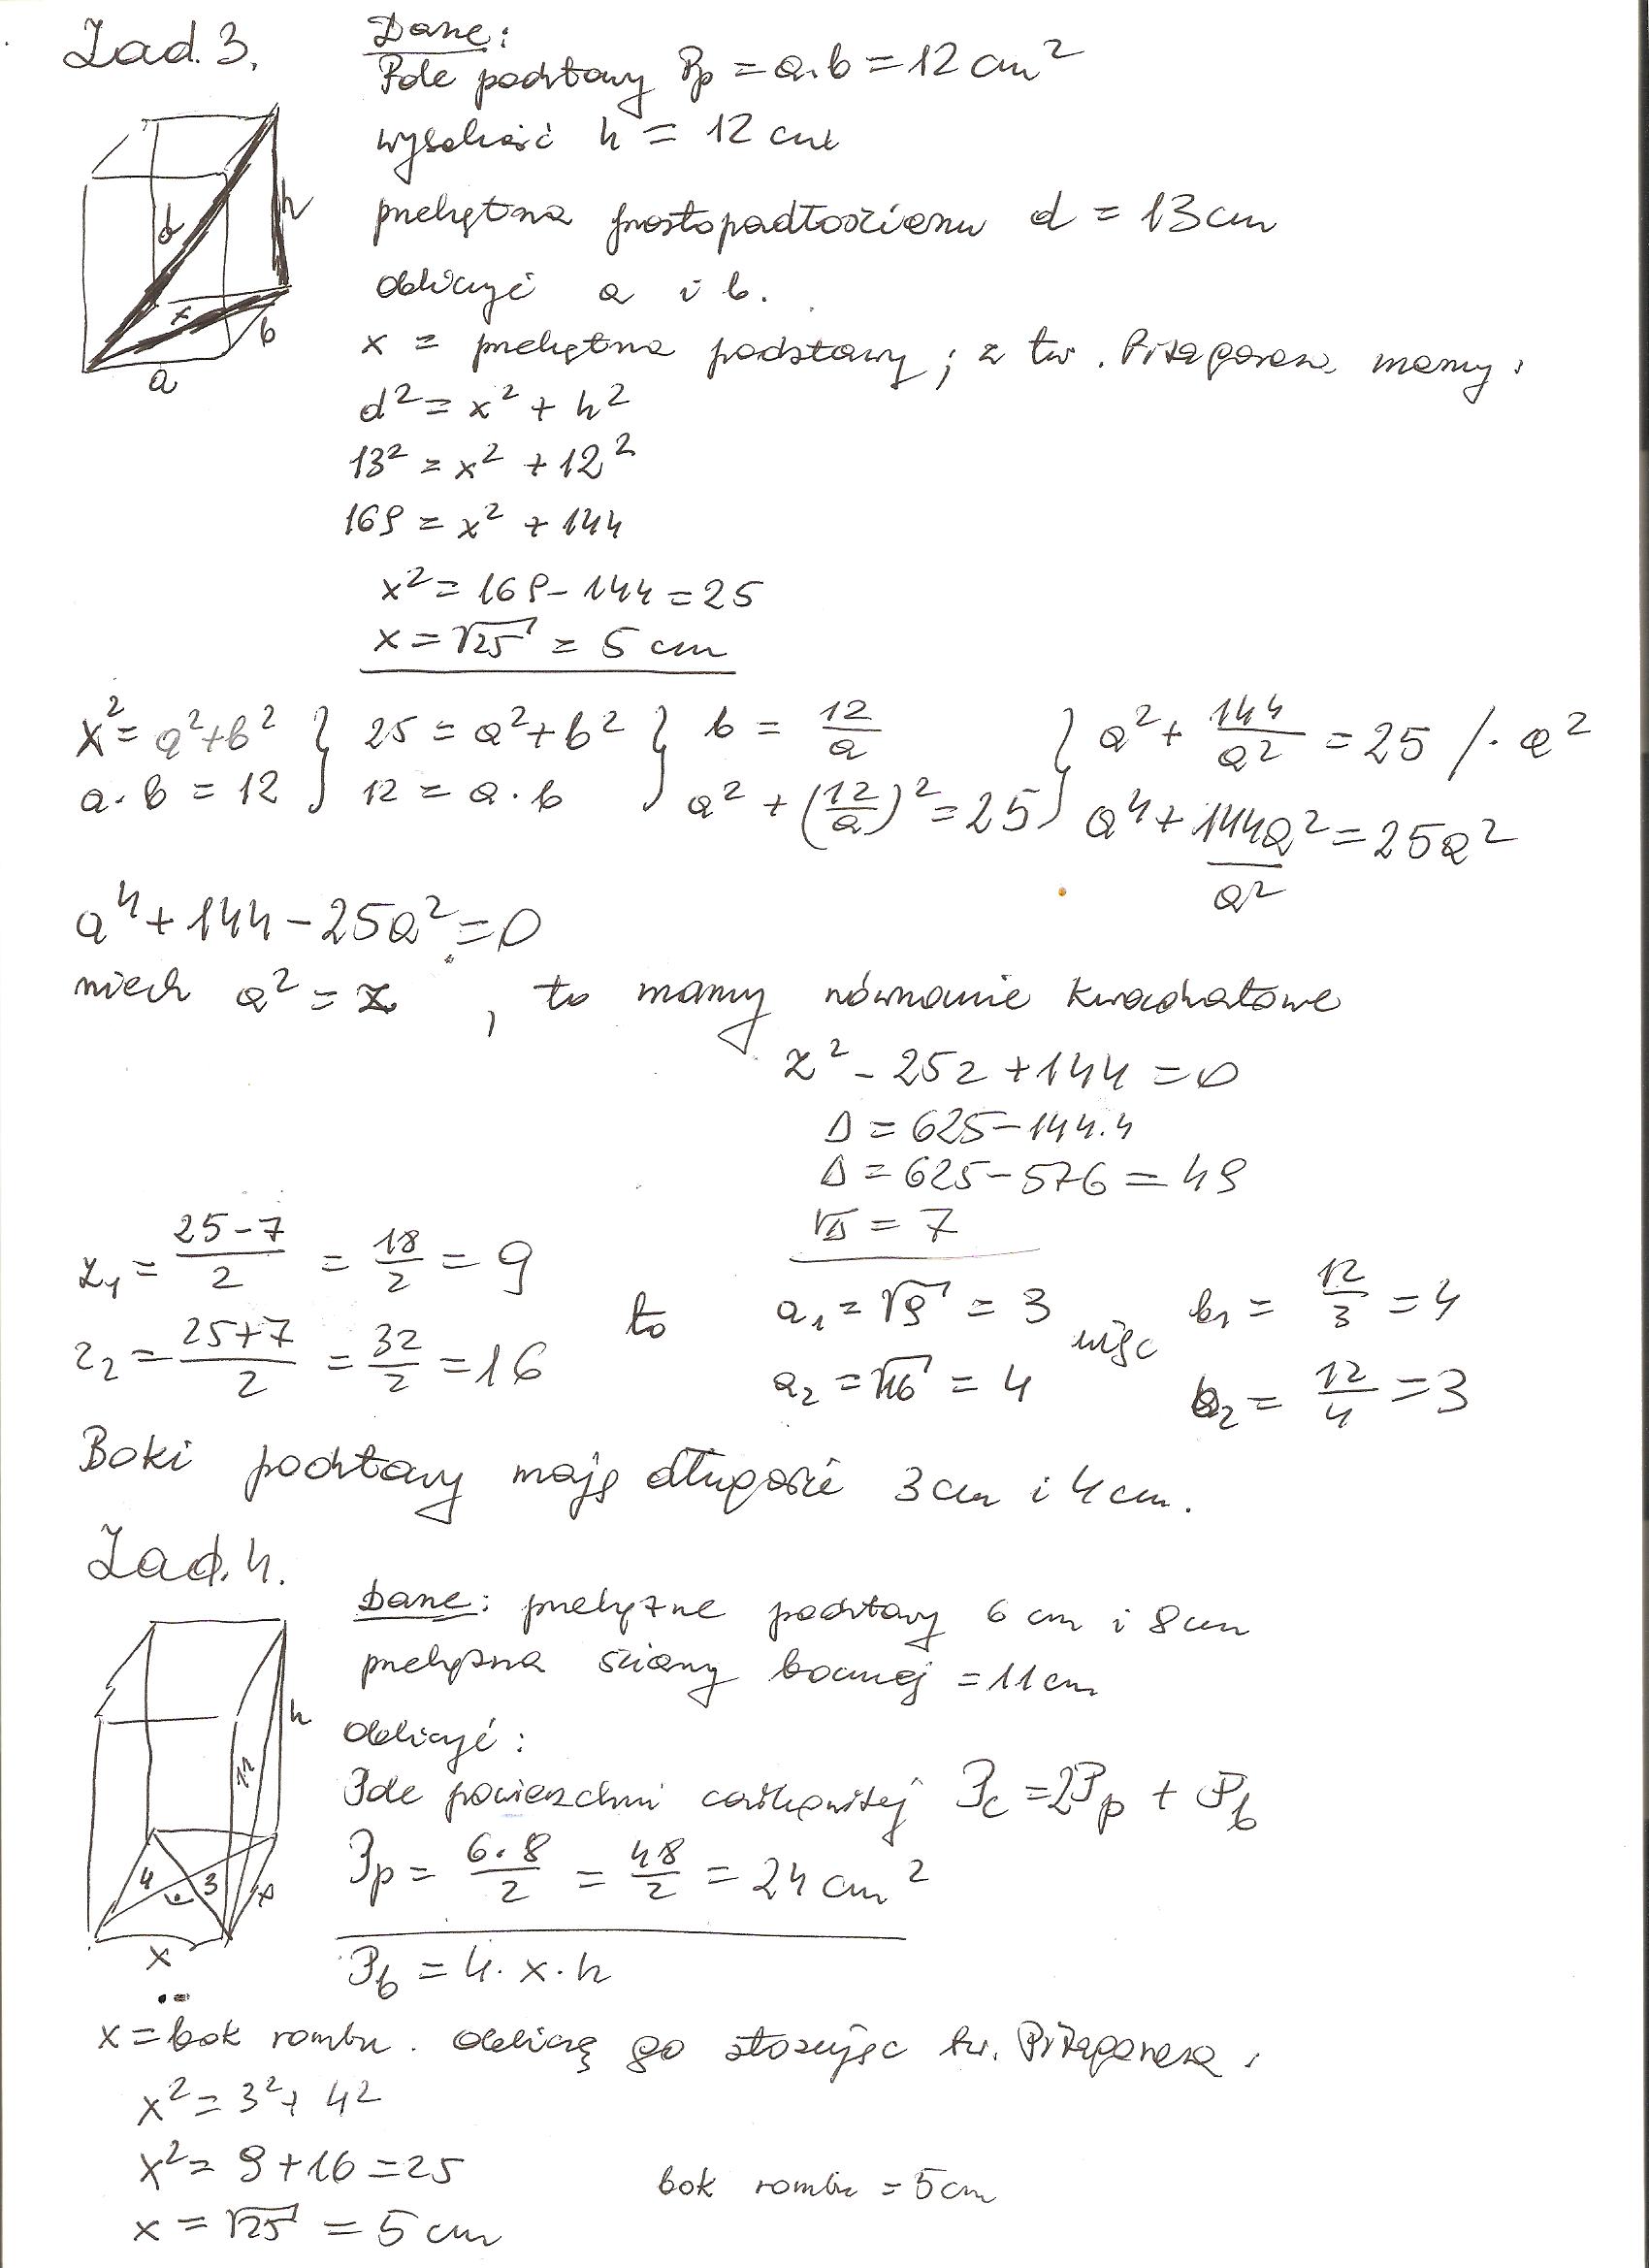 Zad. 3.
Dane:
Pole podstawy Pp = a·b = 12 cm²
wysokość h = 12 cm
przekątna prostopadłościanu d = 13 cm
obliczyć a i b.
d
h
x
b
a
x = przekątna podstawy; z tw. Pitagorasa mamy:
d² = x² + h²
13² = x² + 12²
169 = x² + 144
x² = 169 - 144 = 25
x = √25 = 5 cm
x² = a² + b² } 25 = a² + b² } b = 12/a } a² + 144/a² = 25 /· a²
a·b = 12 } 12 = a·b } a² + (12/a)² = 25 } a⁴ + 144a²/a² = 25a²
a⁴ + 144 - 25a² = 0
niech a² = z, to mamy równanie kwadratowe
z² - 25z + 144 = 0
Δ = 625 - 144·4
Δ = 625 - 576 = 49
√Δ = 7
z₁ = (25-7)/2 = 18/2 = 9
z₂ = (25+7)/2 = 32/2 = 16
to
a₁ = √9 = 3
a₂ = √16 = 4
więc
b₁ = 12/3 = 4
b₂ = 12/4 = 3
Boki podstawy mają długość 3 cm i 4 cm.
Zad. 4.
Dane: przekątne podstawy 6 cm i 8 cm
przekątna ściany bocznej = 11 cm
h
11
4
3
x
x
Obliczyć:
Pole powierzchni całkowitej Pc = 2Pp + Pb
Pp = 6·8/2 = 48/2 = 24 cm²
Pb = 4·x·h
x = bok rombu. Obliczę go stosując tw. Pitagorasa:
x² = 3² + 4²
x² = 9 + 16 = 25
x = √25 = 5 cm
bok rombu = 5 cm